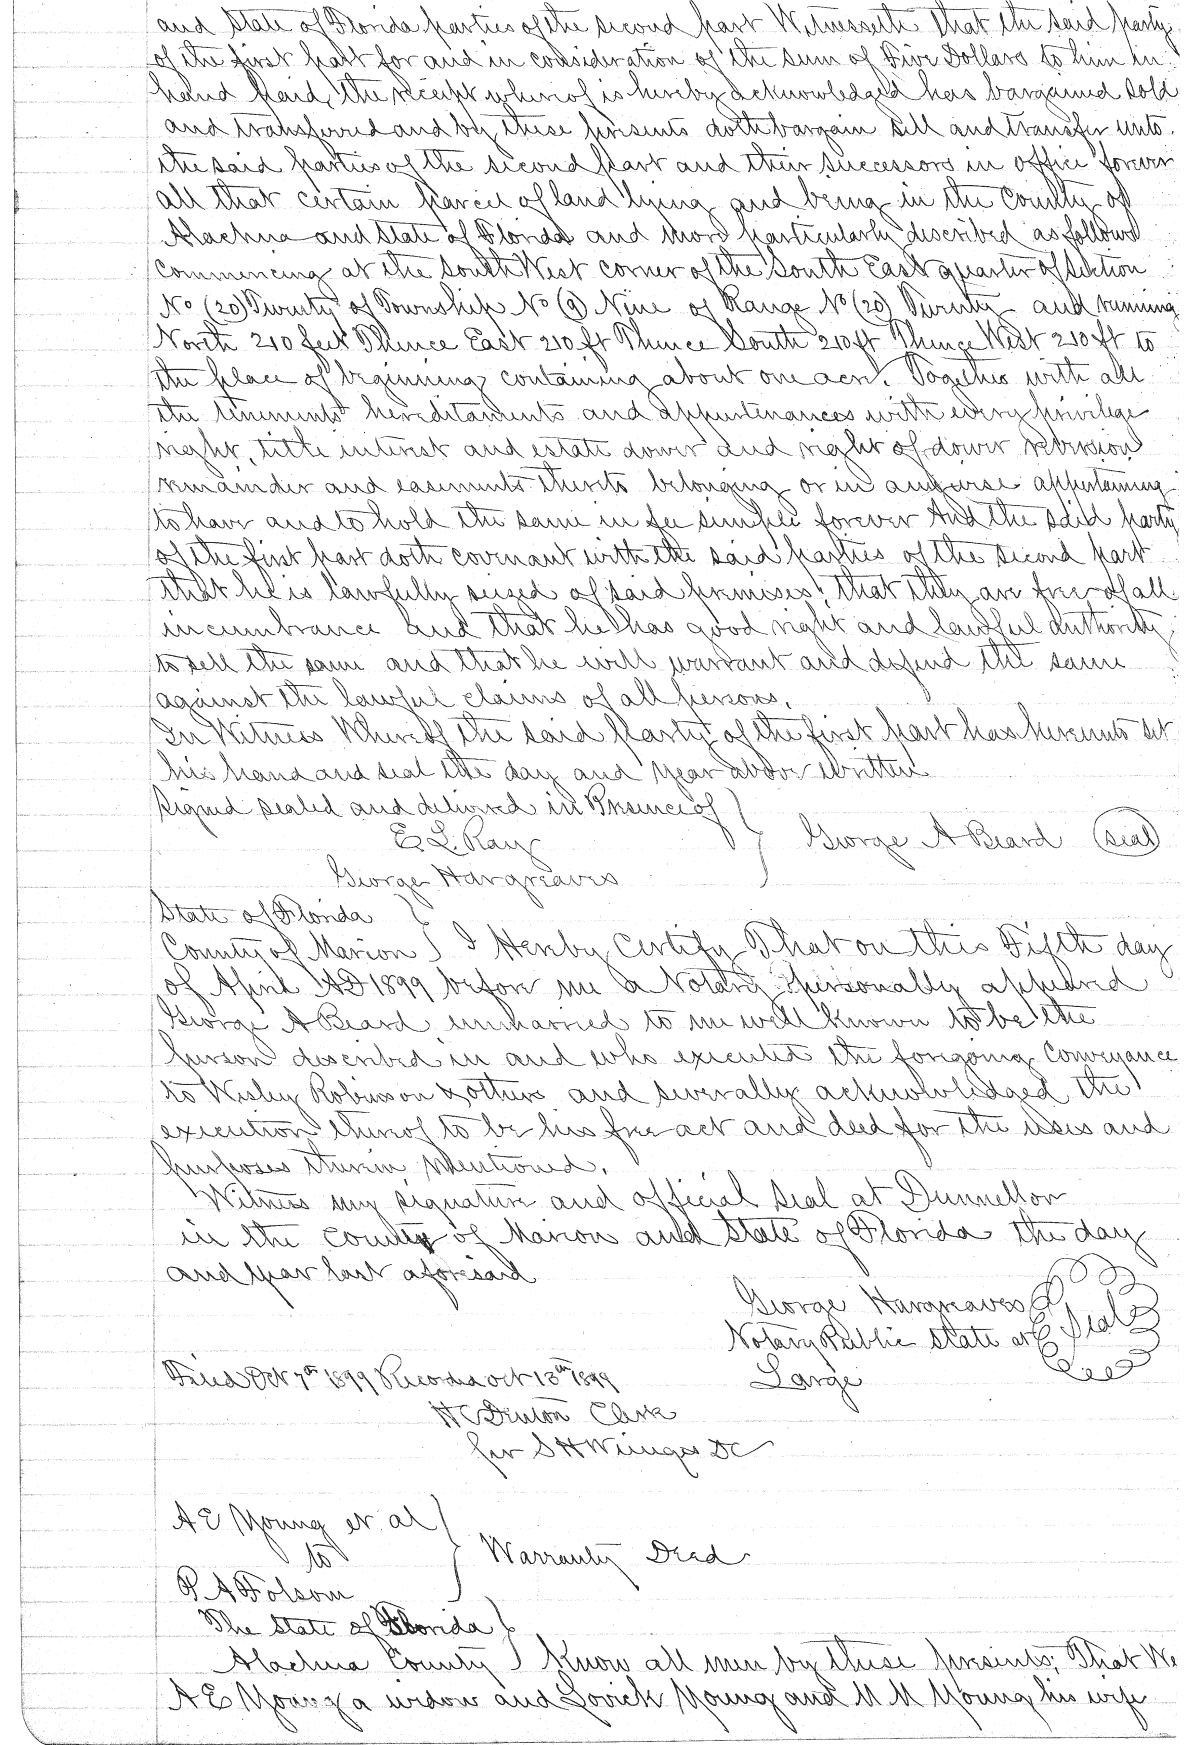 and State of Florida parties of the second part Witnesseth That the said party
of the first part for and in consideration of the sum of Five Dollars to him in
hand paid, the receipt whereof is hereby acknowledged has bargained sold
and transferred and by these presents doth bargain sell and transfer unto
the said parties of the second part and their successors in office forever
all that certain parcel of land lying and being in the County of
Alachua and State of Florida and more particularly described as follows
Commencing at the South West corner of the South East quarter of Section
No (20) Twenty of Township No (9) Nine of Range No (20) Twenty and running
North 210 feet Thence East 210 ft Thence South 210 ft Thence West 210 ft to
the place of beginning containing about one acre. Together with all
the tenements hereditaments and appurtenances with every privilege
right, title interest and estate dower and right of dower reversion
remainder and easements thereto belonging or in anywise appertaining
to have and to hold the same in fee simple forever And the said party
of the first part doth covenant with the said parties of the second part
that he is lawfully seized of said premises, that they are free of all
incumbrance and that he has good right and lawful authority
to sell the same and that he will warrant and defend the same
against the lawful claims of all persons.
In Witness Whereof the said party of the first part has hereunto set
his hand and seal the day and year above written
Signed sealed and delivered in Presence of
E. L. Ray George A Beard (seal)
George Hargreaves
State of Florida
County of Marion I Hereby Certify That on this Fifth day
of April AD 1899 before me a Notary personally appeared
George A Beard unmarried to me well known to be the
person described in and who executed the foregoing Conveyance
to Wesley Robinson & others and severally acknowledged the
execution thereof to be his free act and deed for the uses and
purposes therein mentioned.
Witness my signature and official seal at Dunnellon
in the County of Marion and State of Florida the day
and year last aforesaid
George Hargreaves
Notary Public State at Seal
Large
Filed Oct 7th 1899 Recorded Oct 13th 1899
H C Denton Clerk
per S H Wienges DC
A E Young et al
to Warranty Deed
P A Folsom
The State of Florida
Alachua County Know all men by these presents, That We
A E Young a widow and Lovick Young and M M Young his wife